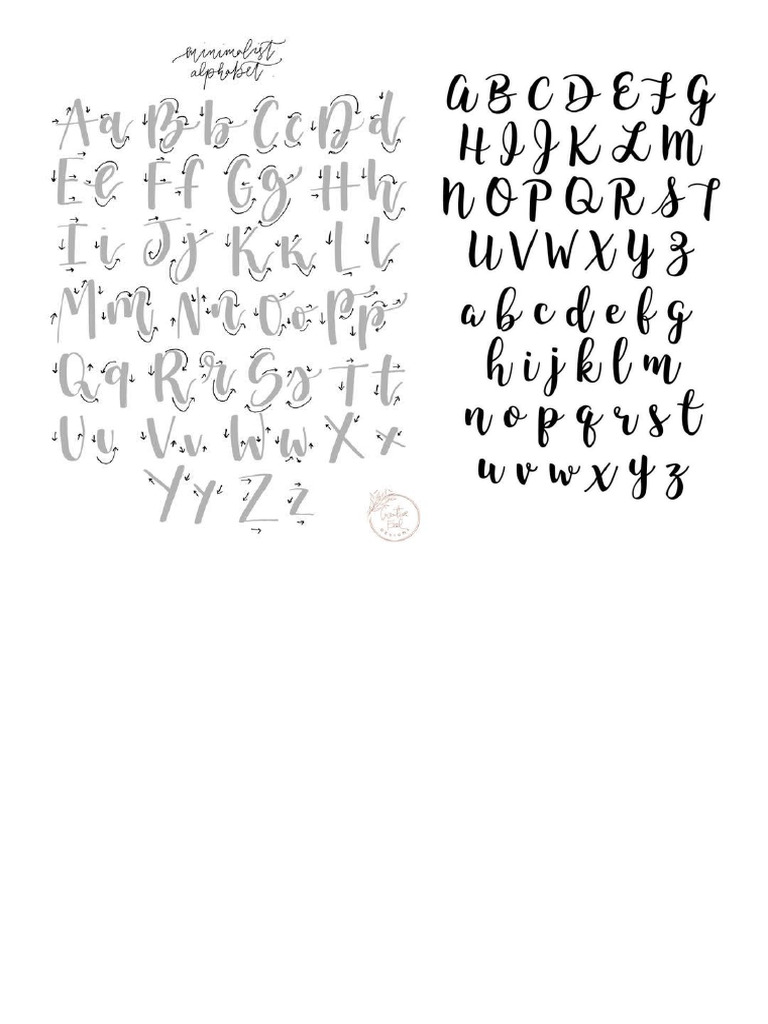 minimalist
alphabet
Aa Bb Cc Dd
Ee Ff Gg Hh
Ii Jj Kk Ll
Mm Nn Oo Pp
Qq Rr Ss Tt
Uu Vv Ww Xx
Yy Zz
DESIGNS
A B C D E F G
H I J K L M
N O P Q R S T
U V W X Y Z
a b c d e f g
h i j k l m
n o p q r s t
u v w x y z